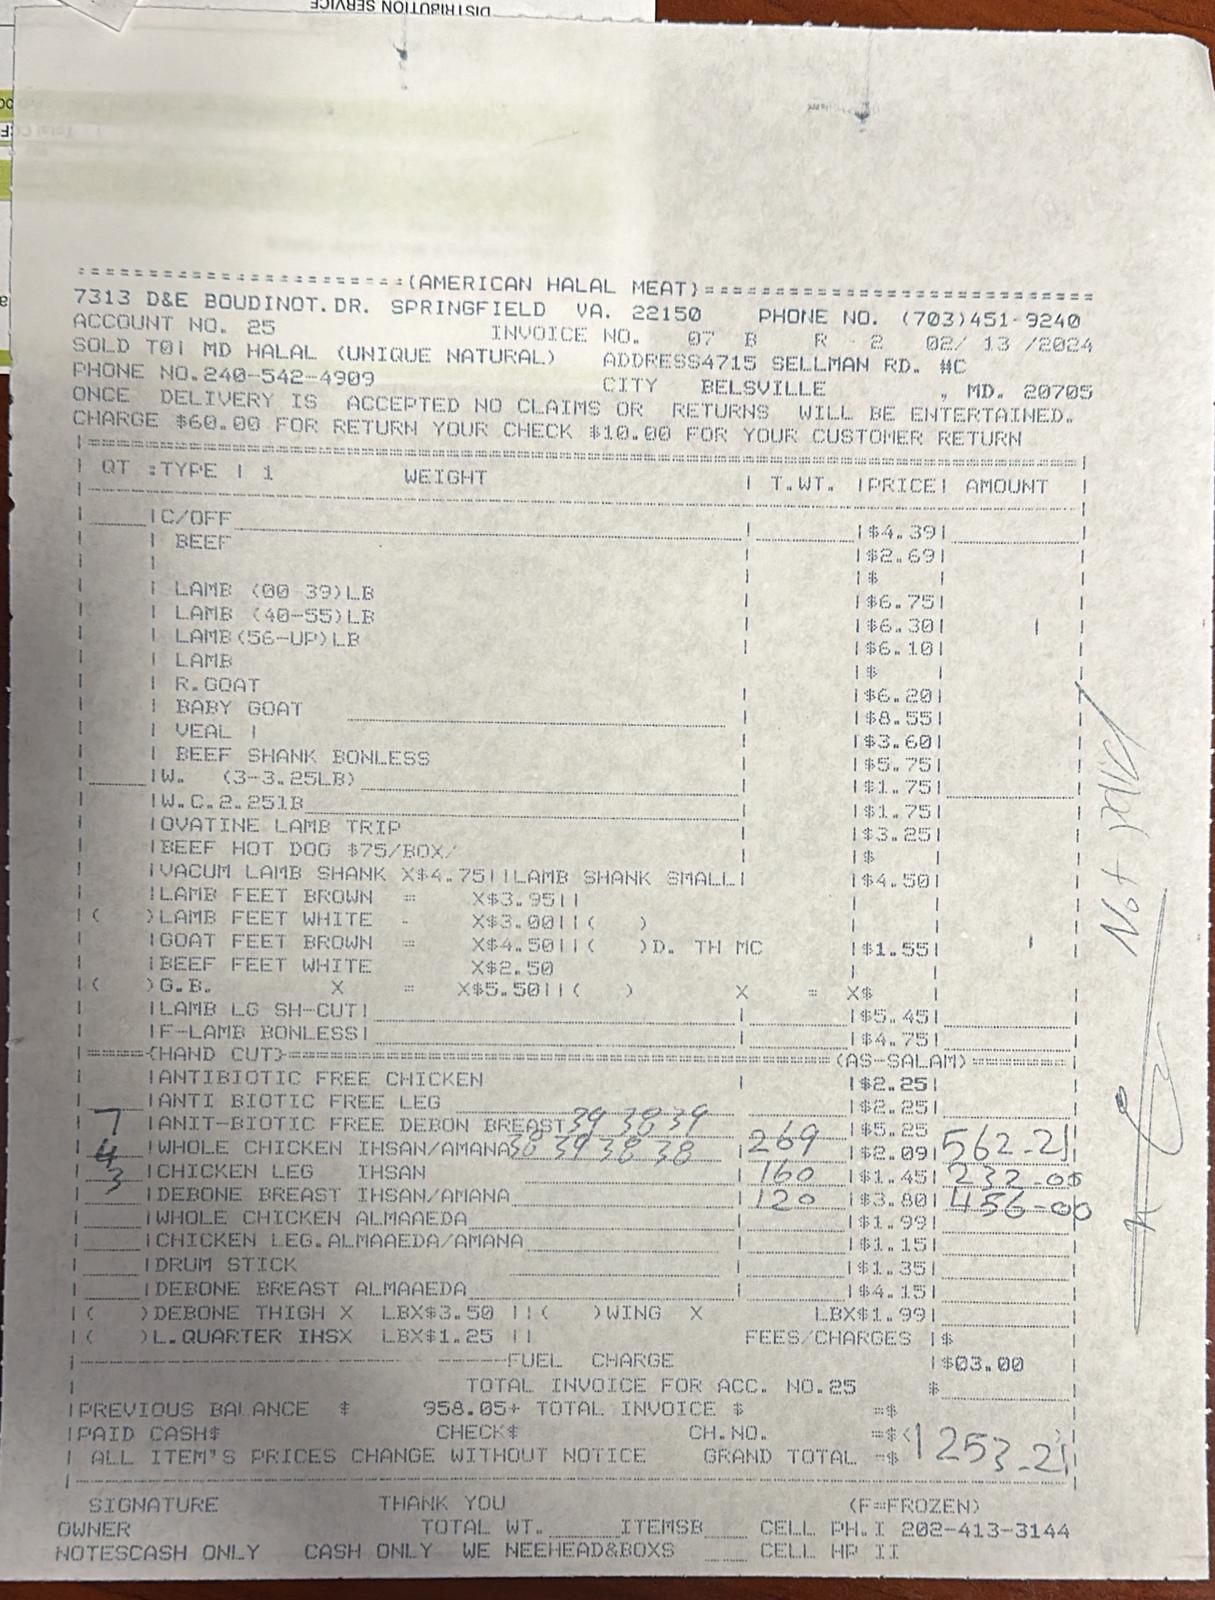 DISTRIBUTION SERVICE
=======================(AMERICAN HALAL MEAT)===========================
7313 D&E BOUDINOT.DR. SPRINGFIELD VA. 22150 PHONE NO. (703)451-9240
ACCOUNT NO. 25 INVOICE NO. 07 B R - 2 02/ 13 /2024
SOLD TO| MD HALAL (UNIQUE NATURAL) ADDRESS4715 SELLMAN RD. #C
PHONE NO.240-542-4909 CITY BELSVILLE , MD. 20705
ONCE DELIVERY IS ACCEPTED NO CLAIMS OR RETURNS WILL BE ENTERTAINED.
CHARGE $60.00 FOR RETURN YOUR CHECK $10.00 FOR YOUR CUSTOMER RETURN
| QT :TYPE | 1 WEIGHT | T.WT. |PRICE| AMOUNT |
|C/OFF |$4.39|
| BEEF |$2.69|
|$ |
| LAMB (00-39)LB |$6.75|
| LAMB (40-55)LB |$6.30|
| LAMB(56-UP)LB |$6.10|
| LAMB |$
| R.GOAT |$6.20|
| BABY GOAT |$8.55|
| VEAL | |$3.60|
| BEEF SHANK BONLESS |$5.75|
|W. (3-3.25LB) |$1.75|
|W.C.2.25lB |$1.75|
|OVATINE LAMB TRIP |$3.25|
|BEEF HOT DOG $75/BOX/ |$ |
|VACUM LAMB SHANK X$4.75||LAMB SHANK SMALL| |$4.50|
|LAMB FEET BROWN = X$3.95||
|( )LAMB FEET WHITE - X$3.00||( )
|GOAT FEET BROWN = X$4.50||( )D. TH MC |$1.55|
|BEEF FEET WHITE X$2.50
|( )G.B. X = X$5.50||( ) X = X$ |
|LAMB LG SH-CUT| |$5.45|
|F-LAMB BONLESS| |$4.75|
|=====(HAND CUT)=====(AS-SALAM)=======|
|ANTIBIOTIC FREE CHICKEN |$2.25|
|ANTI BIOTIC FREE LEG |$2.25|
|ANIT-BIOTIC FREE DEBON BREAST 39 38 39 |$5.25
7 |WHOLE CHICKEN IHSAN/AMANA 38 39 38 38 269 |$2.09| 562-21
4 |CHICKEN LEG IHSAN 160 |$1.45| 232-00
3 |DEBONE BREAST IHSAN/AMANA 120 |$3.80| 456-00
|WHOLE CHICKEN ALMAAEDA |$1.99|
|CHICKEN LEG.ALMAAEDA/AMANA |$1.15|
|DRUM STICK |$1.35|
|DEBONE BREAST ALMAAEDA |$4.15|
|( )DEBONE THIGH X LBX$3.50 ||( )WING X LBX$1.99|
|( )L.QUARTER IHSX LBX$1.25 || FEES/CHARGES |$
FUEL CHARGE |$03.00
TOTAL INVOICE FOR ACC. NO.25 $
|PREVIOUS BALANCE $ 958.05+ TOTAL INVOICE $ =$
|PAID CASH$ CHECK$ CH.NO. =$<
| ALL ITEM'S PRICES CHANGE WITHOUT NOTICE GRAND TOTAL =$ 1253-21
SIGNATURE THANK YOU (F=FROZEN)
OWNER TOTAL WT. ITEMSB CELL PH.I 202-413-3144
NOTESCASH ONLY CASH ONLY WE NEEHEAD&BOXS CELL HP II
Not paid